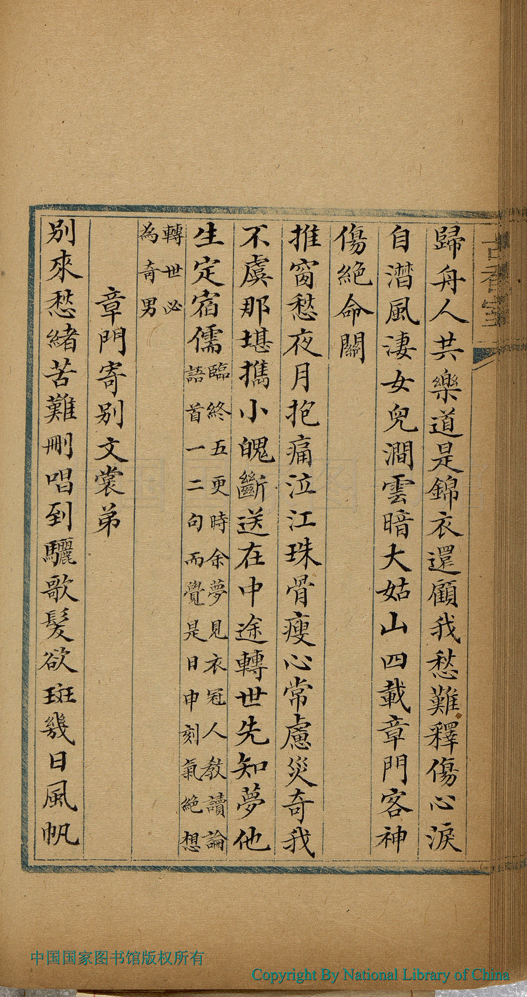 歸舟人共樂道是錦衣還顧我愁難釋傷心淚
自潸風淒女兒澗雲暗大姑山四載章門客神
傷絕命關
推窗愁夜月抱痛泣江珠骨瘦心常慮災奇我
不虞那堪擕小魄斷送在中途轉世先知夢他
生定宿儒臨終五更時余夢見衣冠人教讀論
語首一二句而覺是日申刻氣絕想
轉世必
為奇男
章門寄別文裳弟
別來愁緒苦難刪唱到驪歌髮欲斑幾日風帆
中国国家图书馆版权所有
Copyright By National Library of China